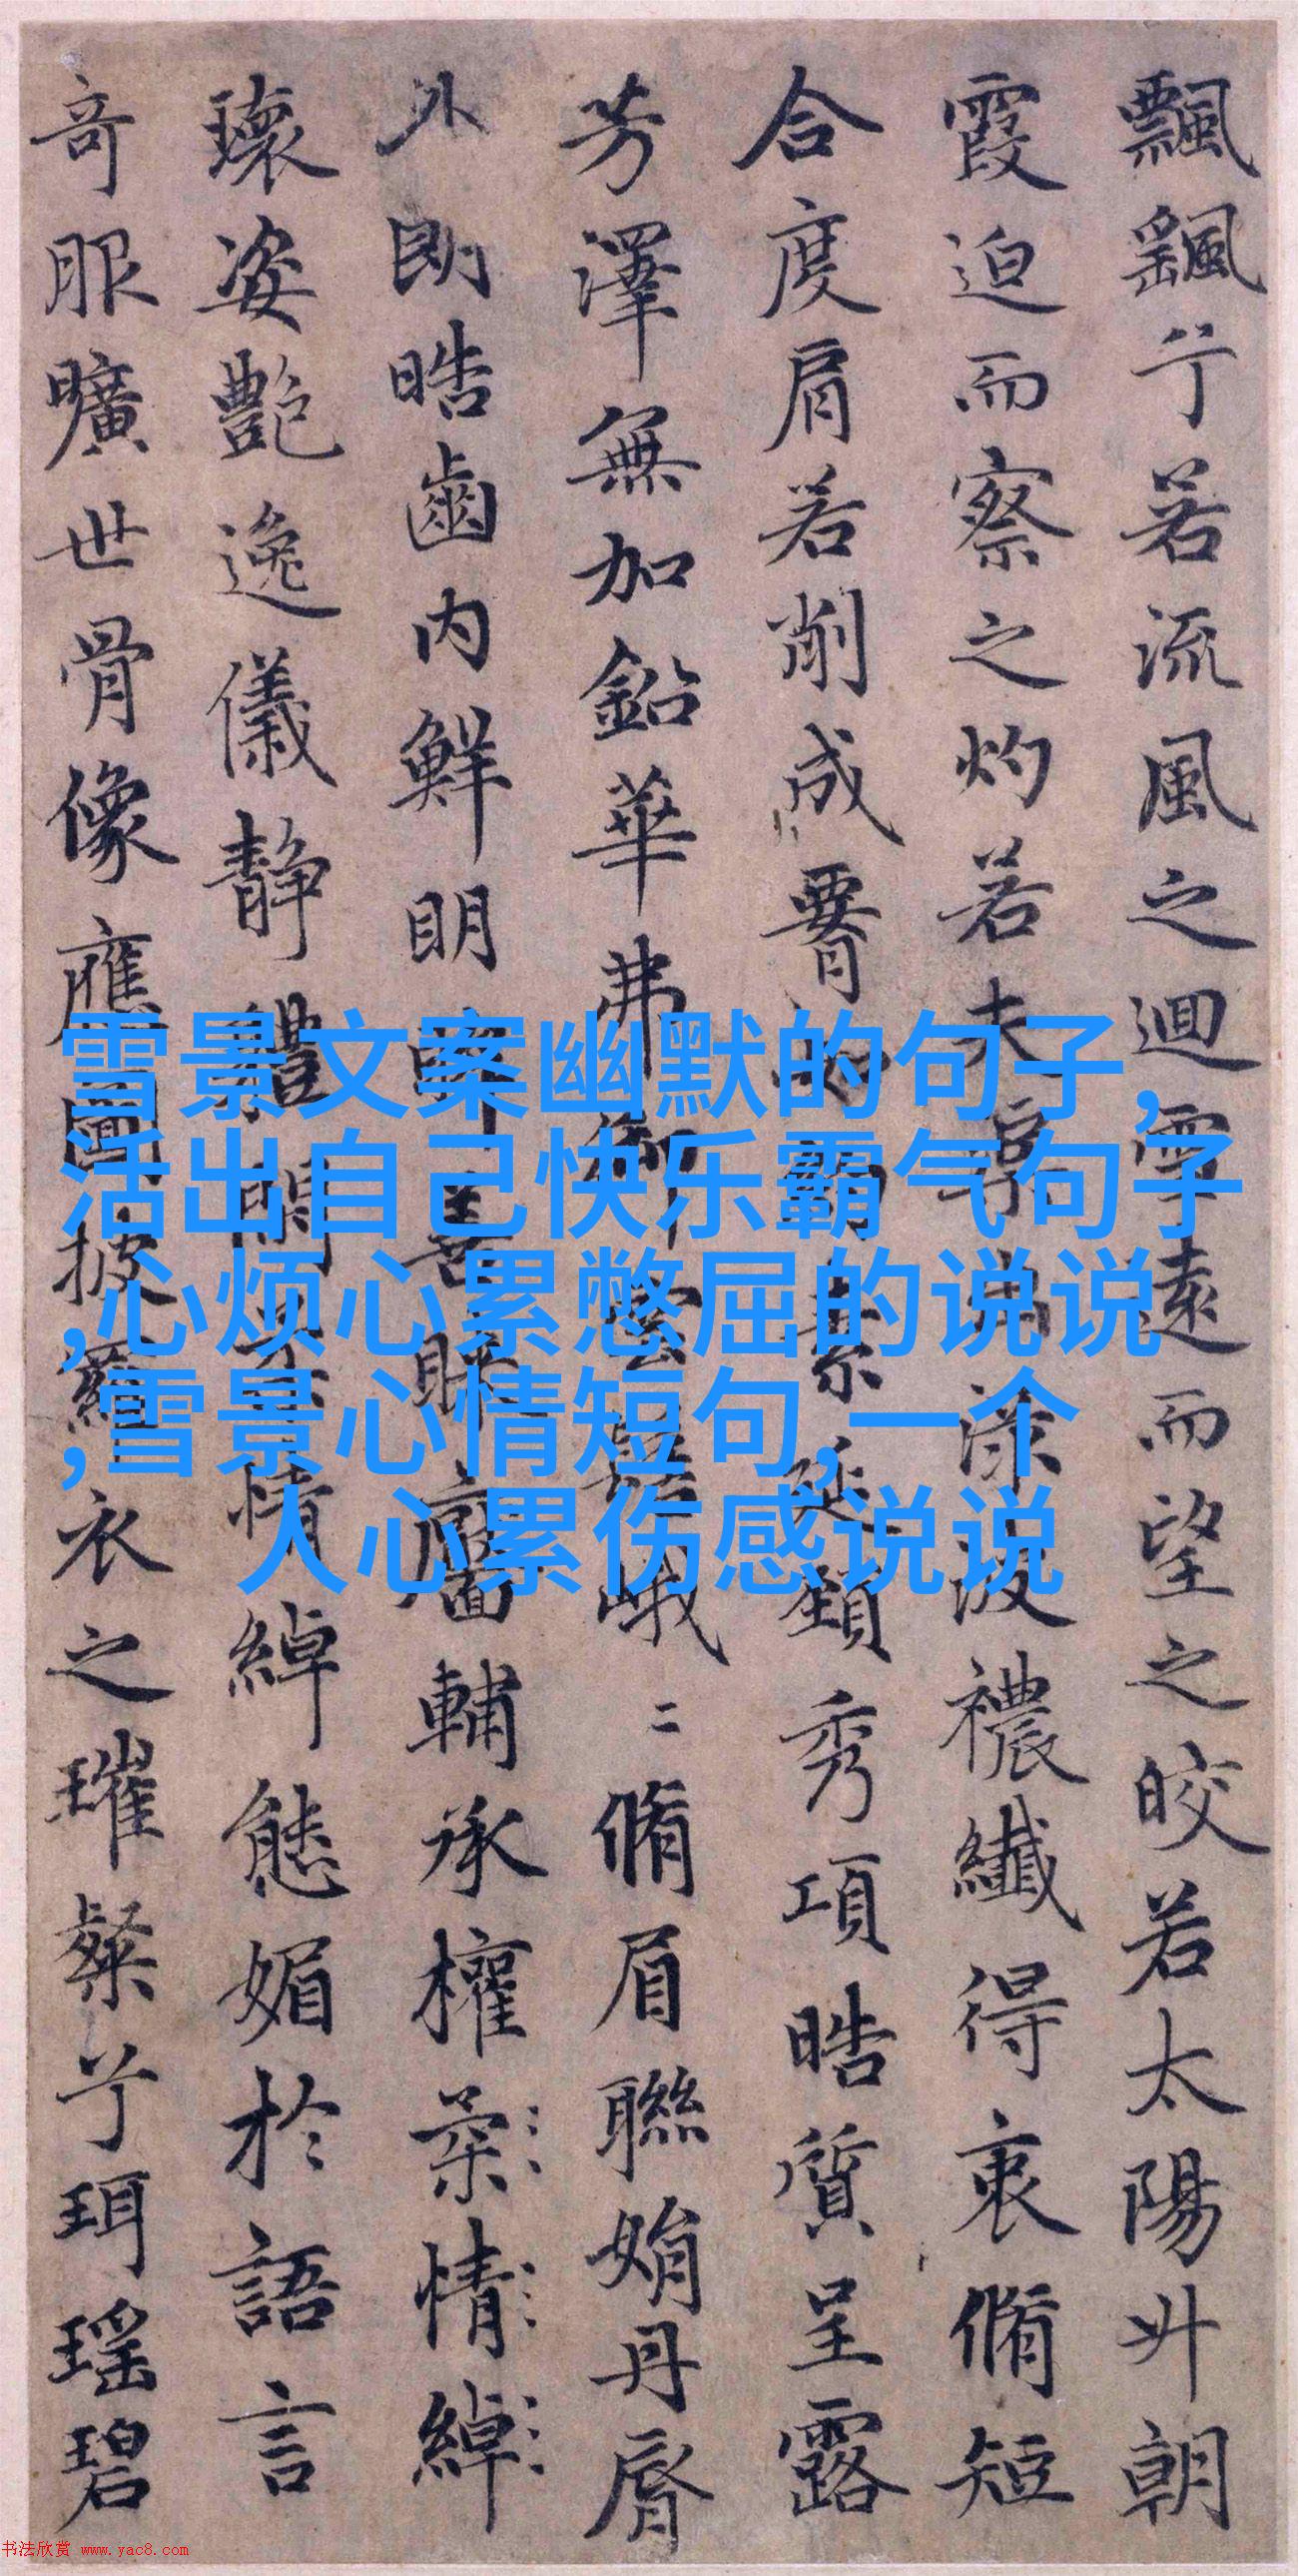 飄飖兮若流風之迴雪遠而望之皎若太陽升朝
霞迫而察之灼若夫蕖出淥波穠纖得衷脩短
合度肩若削成腰如約素延頸秀項皓質呈露
芳澤無加鉛華弗御雲髻峨二脩眉聯娟丹脣
外朗皓齒內鮮明眸善睞靨輔承權柔情綽
瓌姿艷逸儀靜體閑柔情綽態媚於語言
奇服曠世骨像應圖披羅衣之璀粲兮珥瑤碧
雪景文案幽默的句子,
活出自己快乐霸气句子
,心烦心累憋屈的说说
,雪景心情短句,一个
人心累伤感说说
书法欣赏 www.yac8.com